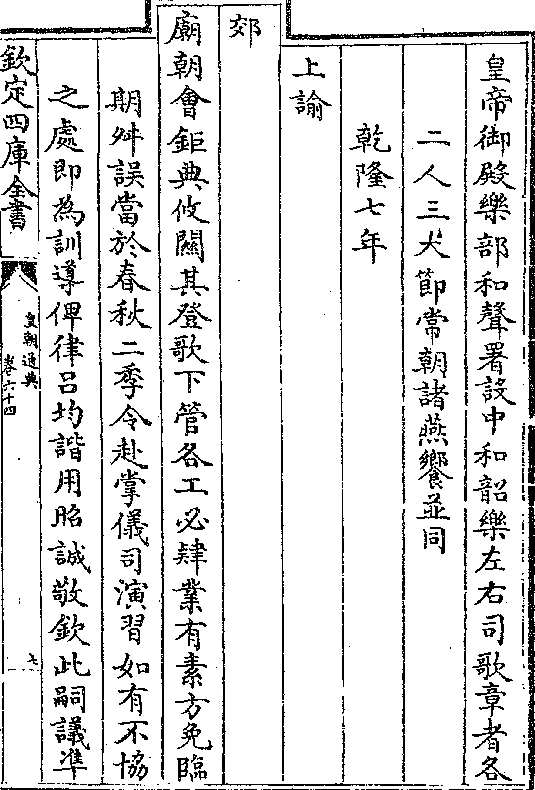 皇帝御殿樂部和聲署設中和韶樂左右司歌章者各
二人三大節常朝諸燕饗並同
乾隆七年
上諭
郊
廟朝會鉅典攸關其登歌下管各工必肄業有素方免臨
期舛誤當於春秋二季令赴掌儀司演習如有不協
之處即為訓導俾律呂均諧用昭誠敬欽此嗣議準
欽定四庫全書
皇朝通典
卷六十四
七